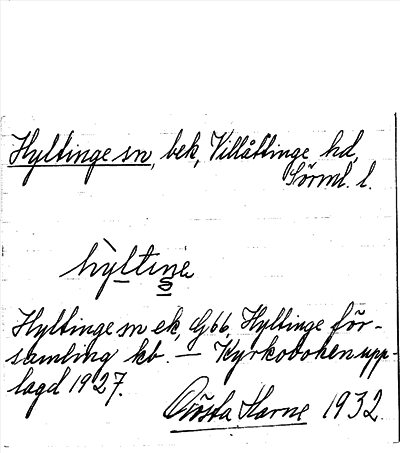 Hyltinge sn, bek, Villåttinge hd,
Sörml. l.
hyltiŋe
Hyltinge sn ek, Gj 66, Hyltinge för-
samling kb. — Kyrkoboken upp-
lagd 1927.
Gösta Harne 1932.